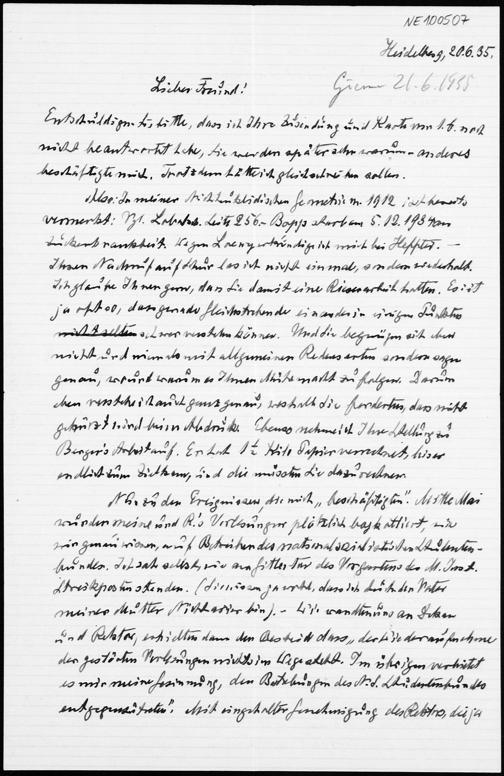 NE100507
Heidelberg, 20.6.35.
Lieber Freund!
Entschuldigen Sie bitte, dass ich Ihre Zusendung und Karte vom 1.6. noch
nicht beantwortet habe, Sie werden später sehn warum anderes
beschäftigte mich. Trotzdem hätte ich gleich schreiben sollen.
Also: In meiner Nichteuklidischen Geometrie 1912 ist bereits
vermerkt: Vgl. Seite 256. Bopp starb am 5.12.1934 an
Zuckerkrankheit. Wegen Loewy erkundige ich mich bei Heffter. —
Ihren Nachruf auf Study las ich nicht einmal, sondern wiederholt.
Ich glaube Ihnen gern, dass Sie damit eine Riesenarbeit hatten. Es ist
ja oft so, dass gerade Gleichstrebende einander in einigen Punkten
nicht selten schwer verstehn können. Und Sie begnügen sich eben
nicht und niemals mit allgemeinen Redensarten sondern sagen
genau, warum es Ihnen Mühe macht zu folgen. Darum
eben verstehe ich auch ganz genau, weshalb Sie forderten, dass nicht
gekürzt wird beim Abdruck. Ebenso nehme ich Ihre Stellung zu
Bergers Arbeit auf. Er hat Papier verrechnet, bis er
endlich zum Ziel kam, und die mussten Sie dazu rechnen.
Nun zu den Ereignissen, die mich „beschäftigten“. Mitte Mai
wurden meine und R.'s Vorlesungen plötzlich boykottiert, wie
wir genau wissen, auf Betreiben des nationalsozialistischen Studenten-
bundes. Ich sah selbst, wie am Gitter des Vorgartens des M. Inst.
Streikposten standen. (Sie wissen ja wohl, dass ich durch den Vater
meiner Mutter Nichtarier bin). – Wir wandten uns an Dekan
und Rektor, erhielten dann den Bescheid dass „der Wiederaufnahme
der gestörten Vorlesungen nichts im Wege steht. Im übrigen verbietet
es mir meine Gesinnung, den Bestrebungen des N.S. Studentenbundes
entgegenzutreten“. Mit eingeholter Genehmigung des Rektors, die ja